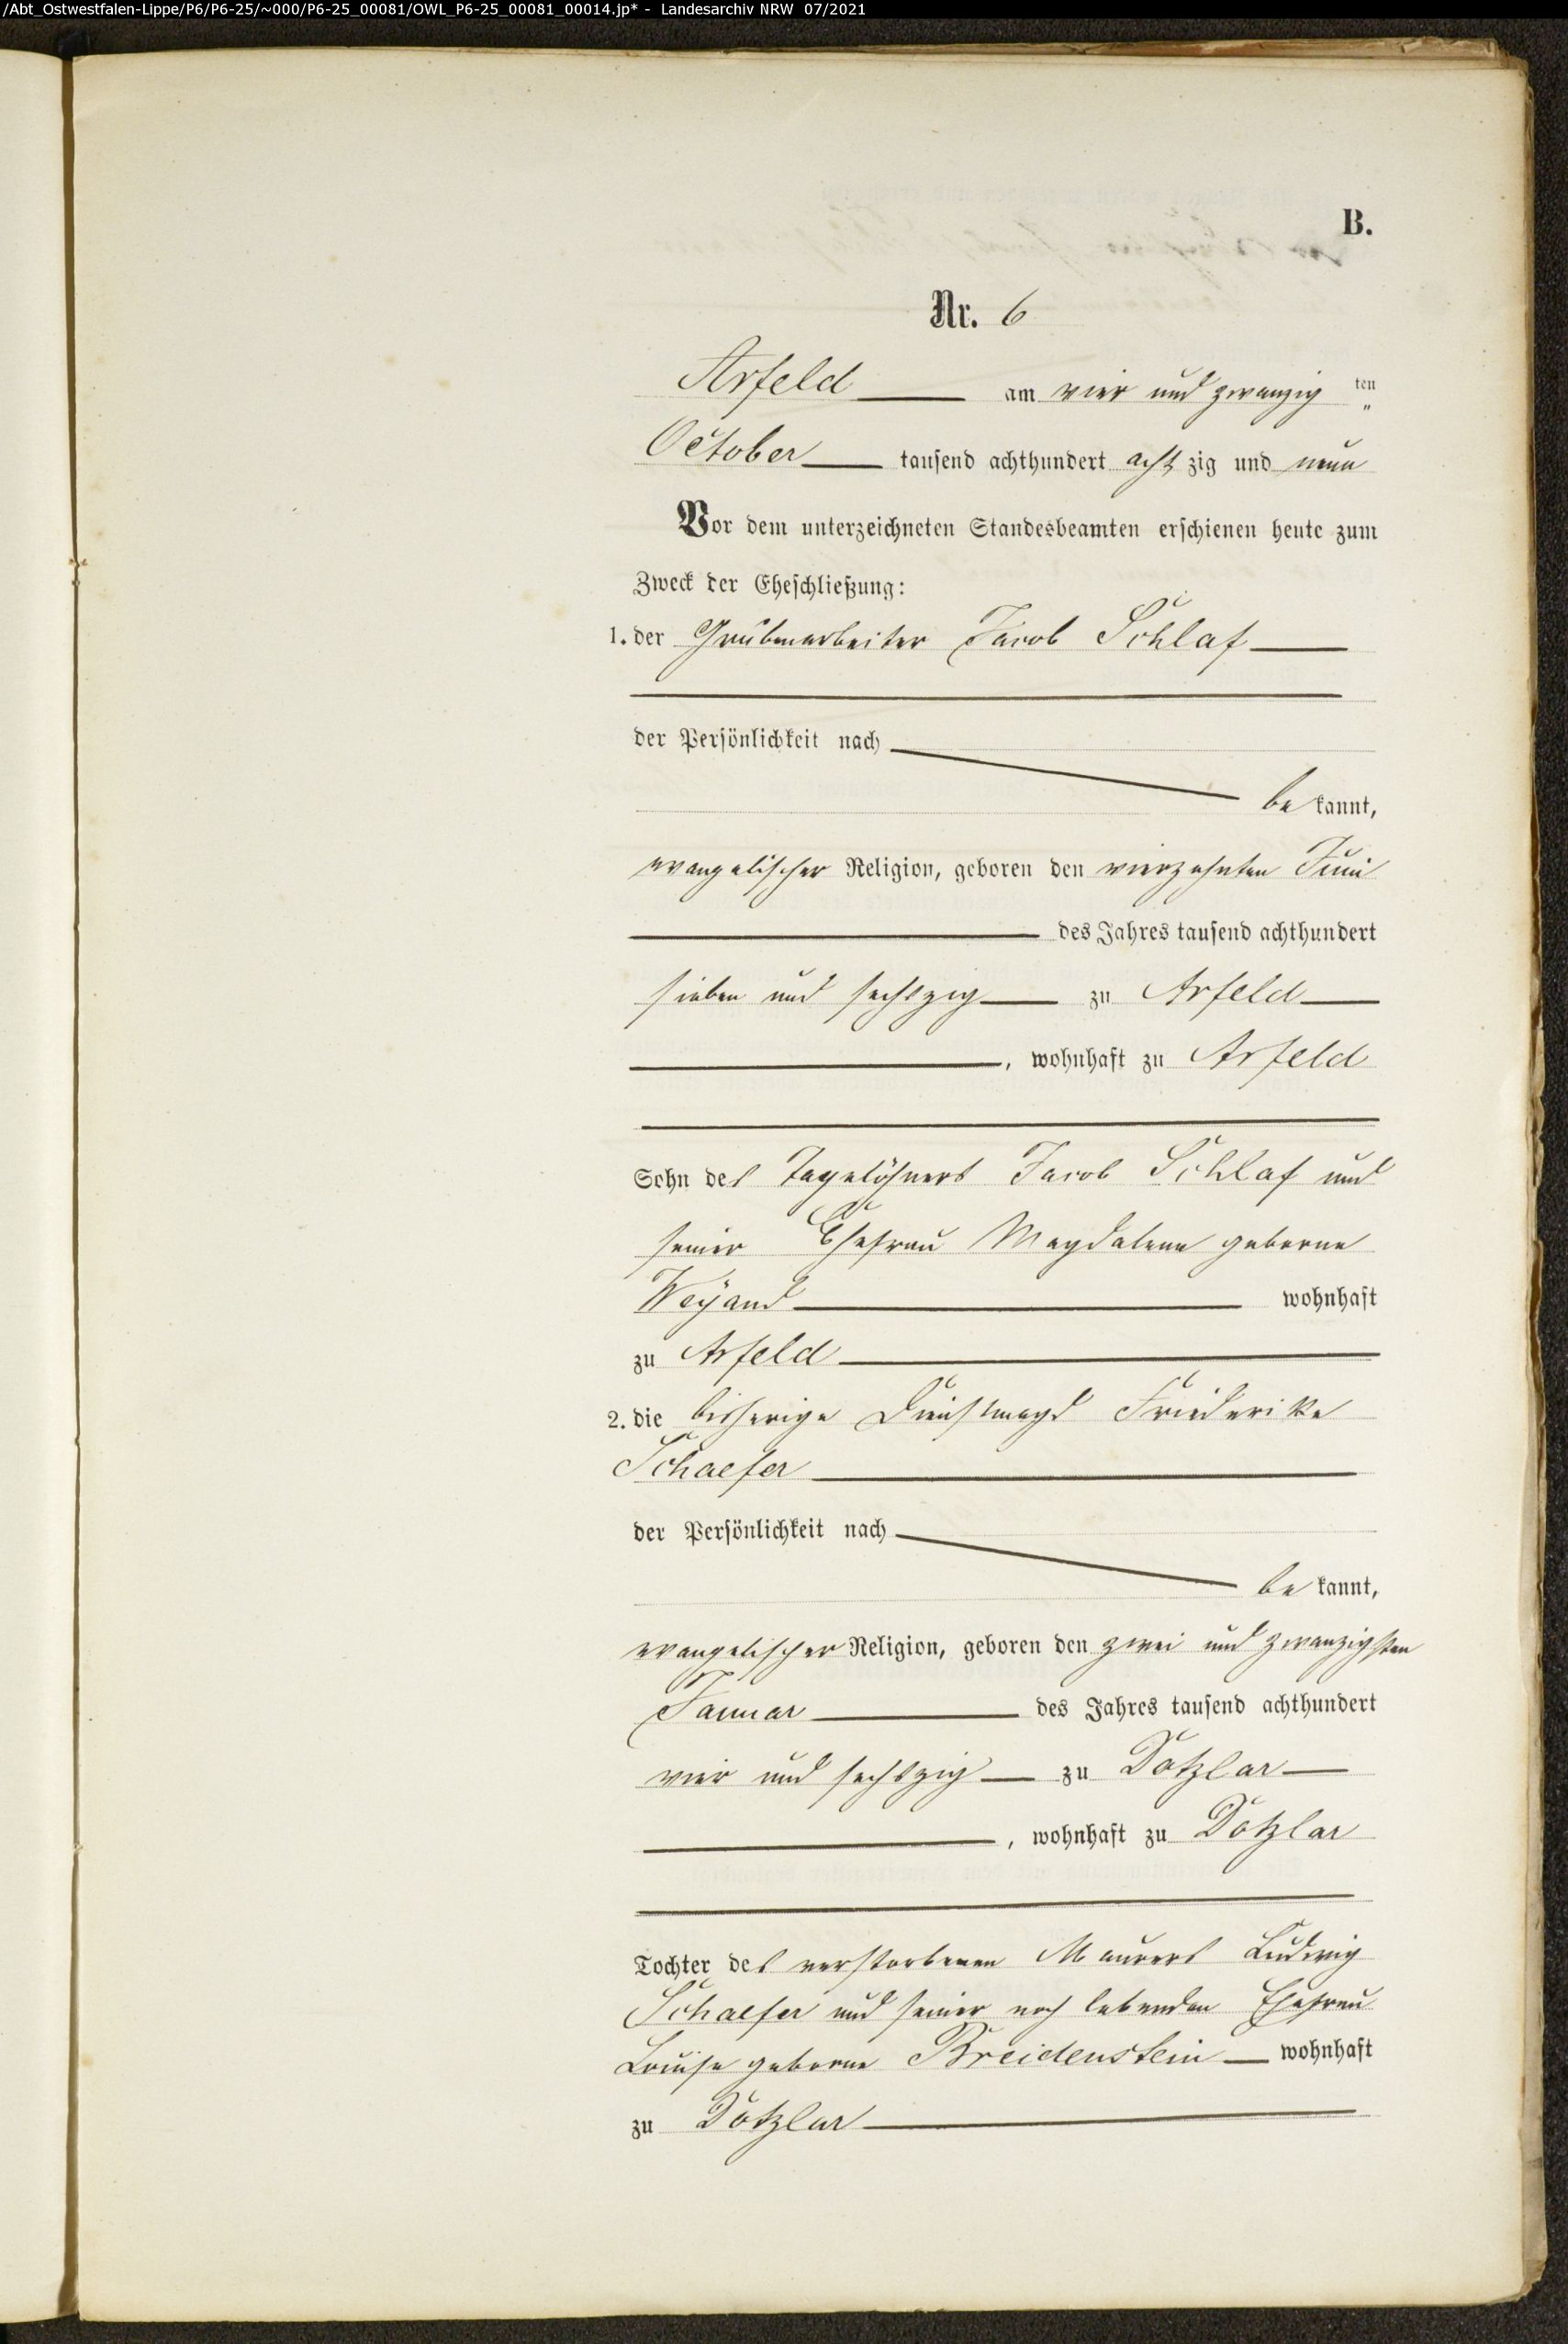 /Abt_Ostwestfalen-Lippe/P6/P6-25/~000/P6-25_00081/OWL_P6-25_00081_00014.jp* - Landesarchiv NRW 07/2021
B.
Nr. 6
Arfeld am vier und zwanzig ten
October tausend achthundert acht zig und neun
Vor dem unterzeichneten Standesbeamten erschienen heute zum
Zweck der Eheschließung:
1. der Grubenarbeiter Jacob Schlaf
der Persönlichkeit nach
be kannt,
evangelischer Religion, geboren den vierzehnten Juni
des Jahres tausend achthundert
sieben und sechszig zu Arfeld
, wohnhaft zu Arfeld
Sohn des Tagelöhners Jacob Schlaf und
seiner Ehefrau Magdalena geborne
Weyand wohnhaft
zu Arfeld
2. die bisherige Dienstmagd Friederike
Schaefer
der Persönlichkeit nach
be kannt,
evangelischer Religion, geboren den zwei und zwanzigsten
Januar des Jahres tausend achthundert
vier und sechszig zu Dotzlar
, wohnhaft zu Dotzlar
Tochter des verstorbenen Maurers Ludwig
Schaefer und seiner noch lebenden Ehefrau
Louise geborne Breidenstein wohnhaft
zu Dotzlar